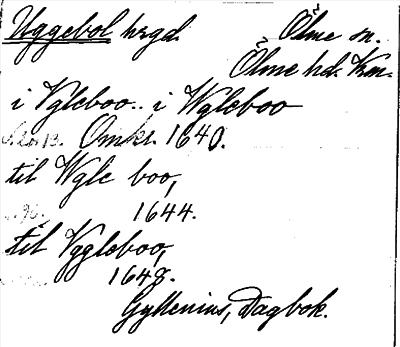 Uggebol hrgd. Ölme sn.
Ölme hd. Krm.
i Vgleboo.. i Wgleboo
13. Omkr. 1640.
til Wgle boo,
96. 1644.
til Vggleboo,
1648.
Gyllenius, Dagbok.